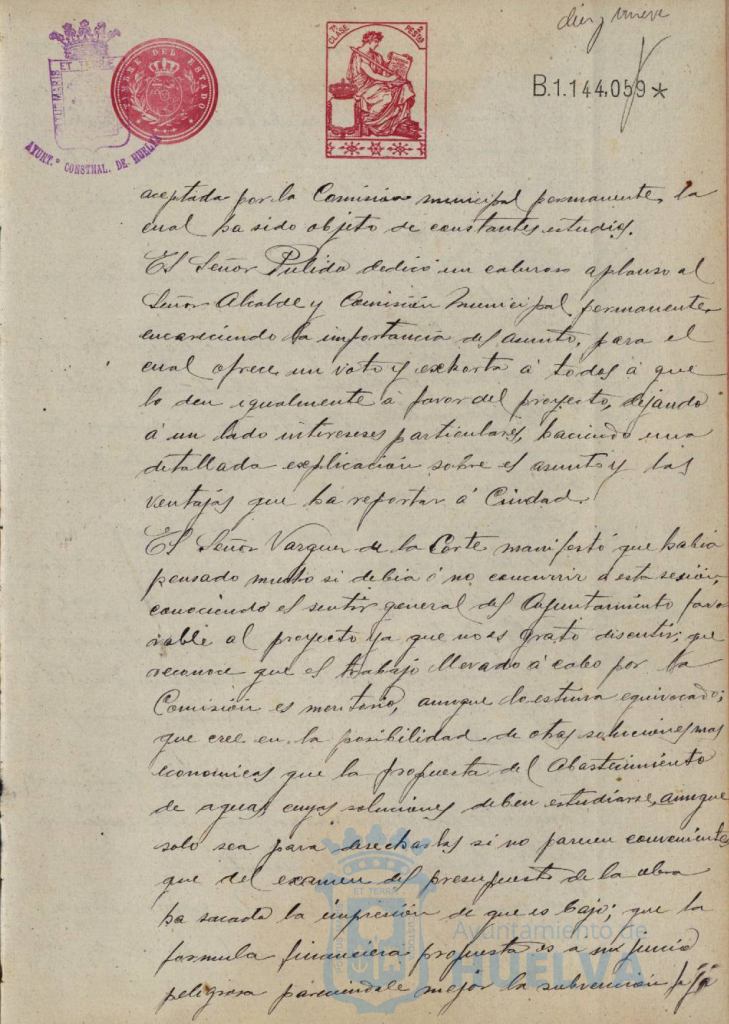 diez y nueve
7ª CLASE 2 PESETAS
TIMBRE DEL ESTADO
B.1.144.059*
PORTUS MARIS ET TERRE
AYUNT.º CONSTNAL. DE HUELVA
aceptada por la Comision municipal permanente, la
cual ha sido objeto de constantes estudios.
El Señor Pulido dedicó un caluroso aplauso al
Señor Alcalde y Comisión Municipal permanente
encareciendo la importancia del asunto, para el
cual ofrece un voto y exhorta á todos á que
lo den igualmente á favor del proyecto, dejando
á un lado intereses particulares, haciendo una
detallada explicación sobre el asunto y las
ventajas que ha reportar á Ciudad.
El Señor Vazquez de la Corte manifestó que habia
pensado mucho si debia ó no concurrir a esta sesión,
conociendo el sentir general del Ayuntamiento favo
rable al proyecto ya que no es grato discutir; que
reconoce que el trabajo llevado á cabo por la
Comisión es meritorio, aunque lo estima equivocado;
que cree en la posibilidad de otras soluciones mas
economicas que la propuesta del Abastecimiento
de aguas, cuyas soluciones deben estudiarse, aunque
solo sea para desecharlas si no parecen convenientes
que del examen del presupuesto de la obra
ha sacado la impresión de que es bajo; que la
formula financiera propuesta es a su juicio
peligrosa pareciendole mejor la subvención fija
Ayuntamiento de
HUELVA